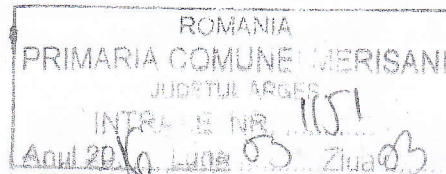 ROMANIA
PRIMARIA COMUNEI MERISANI
JUDETUL ARGES
INTRARE NR. 1151
Anul 20 Luna 03 Ziua 03